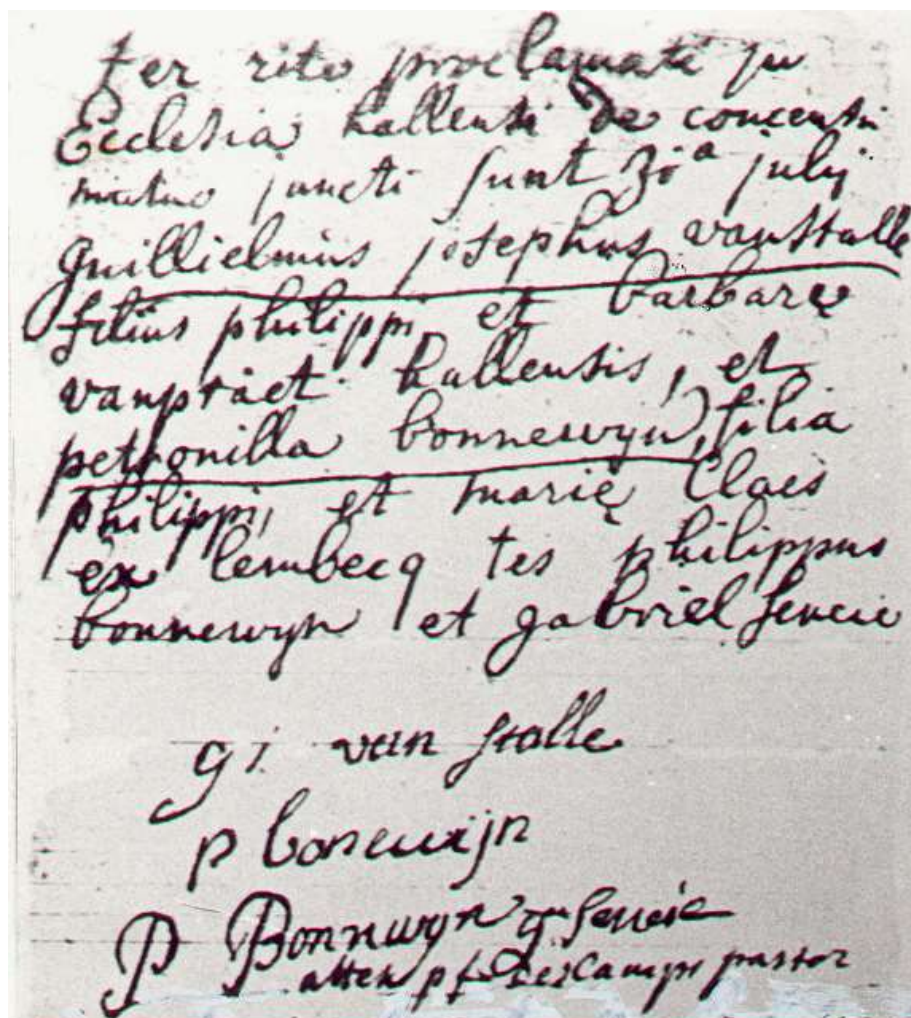 ter rito proclamati in
Ecclesia hallensi de concensu
mutuo juncti sunt julij
guillielmus josephus vanstalle
filius philippi et barbarę
vanpraet hallensis, et
petronilla bonnewyn, filia
philippi, et marię Claes
ex lembecq tes philippus
bonnewyn et gabriel seneie
g i van stalle
p bonewijn
P Bonnwyn g seneie
atten p f Descamps pastor